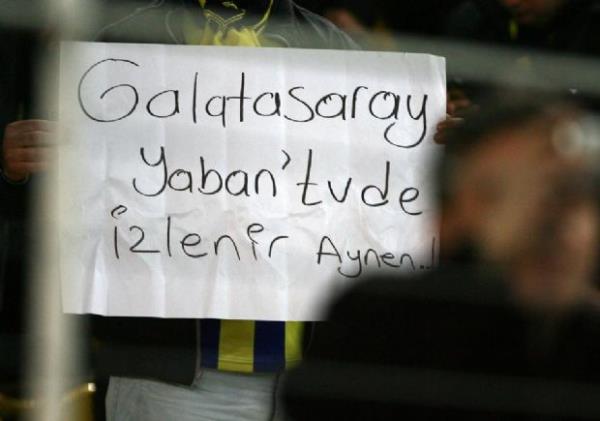 Galatasaray
Yaban'tvde
izlenir Aynen..!